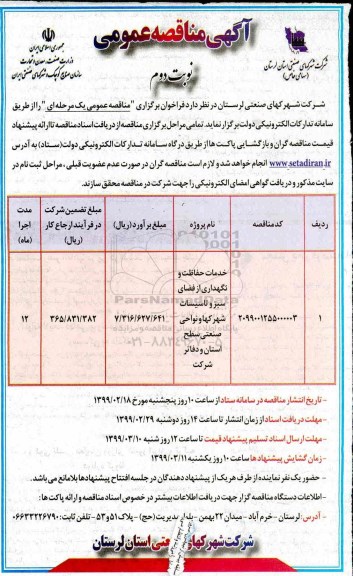 آگهی مناقصه عمومی
نوبت دوم
جمهوری اسلامی ایران
وزارت صنعت، معدن و تجارت
سازمان صنایع کوچک و شهرکهای صنعتی ایران
شرکت شهرکهای صنعتی استان لرستان
(سهامی خاص)
شرکت شهرکهای صنعتی لرستان در نظر دارد فراخوان برگزاری "مناقصه عمومی یک مرحله ای" را از طریق
سامانه تدارکات الکترونیکی دولت برگزار نماید. تمامی مراحل برگزاری مناقصه از دریافت اسناد مناقصه تا ارائه پیشنهاد
قیمت مناقصه گران و بازگشایی پاکت ها از طریق درگاه سامانه تدارکات الکترونیکی دولت (ستاد) به آدرس
www.setadiran.ir انجام خواهد شد و لازم است مناقصه گران در صورت عدم عضویت قبلی، مراحل ثبت نام در
سایت مذکور و دریافت گواهی امضای الکترونیکی را جهت شرکت در مناقصه محقق سازند.
ردیف | کد مناقصه | نام پروژه | مبلغ برآورد (ریال) | مبلغ تضمین شرکت در فرآیند ارجاع کار (ریال) | مدت اجرا (ماه)
۱ | ۲۰۹۹۰۰۱۲۵۵۰۰۰۰۰۳ | خدمات حفاظت و نگهداری از فضای سبز و تاسیسات شهرکها و نواحی صنعتی سطح استان و دفاتر شرکت | ۷/۳۱۶/۶۲۷/۶۴۱ | ۳۶۵/۸۳۱/۳۸۲ | ۱۲
- تاریخ انتشار مناقصه در سامانه ستاد از ساعت ۱۰ روز پنجشنبه مورخ ۱۳۹۹/۰۲/۱۸
- مهلت دریافت اسناد از زمان انتشار تا ساعت ۱۴ روز دوشنبه ۱۳۹۹/۰۲/۲۹
- مهلت ارسال اسناد تسلیم پیشنهاد قیمت تا ساعت ۱۲ روز شنبه ۱۳۹۹/۰۳/۱۰
- زمان گشایش پیشنهاد ها ساعت ۱۰ روز یکشنبه ۱۳۹۹/۰۳/۱۱
- حضور یک نفر نماینده از طرف هر یک از پیشنهاد دهندگان در جلسه افتتاح پیشنهادها بلامانع می باشد.
- اطلاعات دستگاه مناقصه گزار جهت دریافت اطلاعات بیشتر در خصوص اسناد مناقصه و ارائه پاکت ها:
- آدرس: لرستان - خرم آباد - میدان ۲۲ بهمن - بلوار مدیریت (حج) - پلاک ۵۱ و ۵۳ - تلفن ثابت: ۰۶۶۳۳۲۲۶۷۹۰
شرکت شهرکهای صنعتی استان لرستان